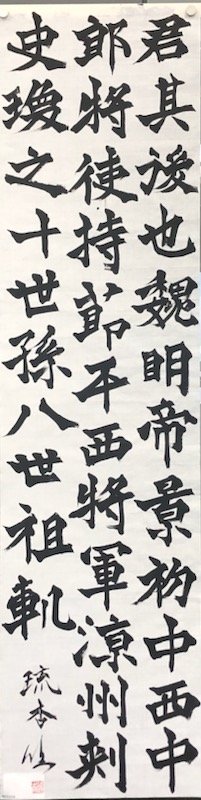 君其後也魏明帝景初中西中
郎將使持節平西將軍涼州刺
史瓊之十世孫八世祖軌